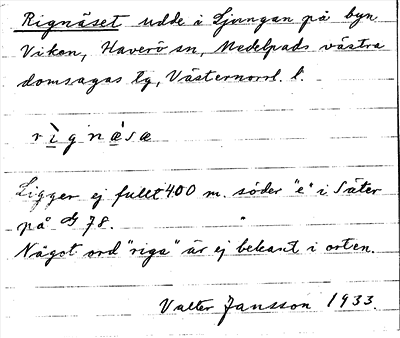 Rignäset udde i Ljungan på byn
Viken, Haverö sn, Medelpads västra
domsagas tg, Västernorrl. l.
rìgnæ̀sæ
Ligger ej fullt 400 m. söder "e" i Säter
på G 78.
Något ord "riga" är ej bekant i orten.
Valter Jansson 1933.